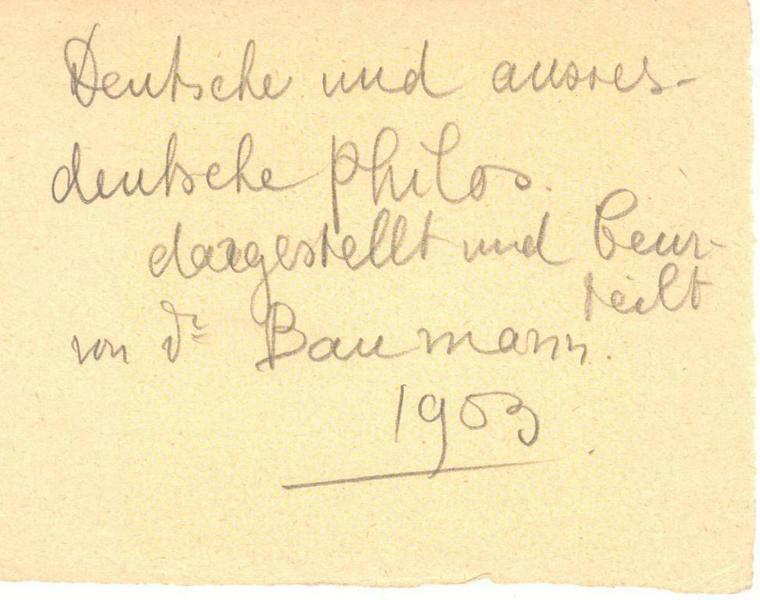 Deutsche und ausser-
deutsche Philos.
dargestellt und beur-
teilt
von Dr Baumann.
1903.